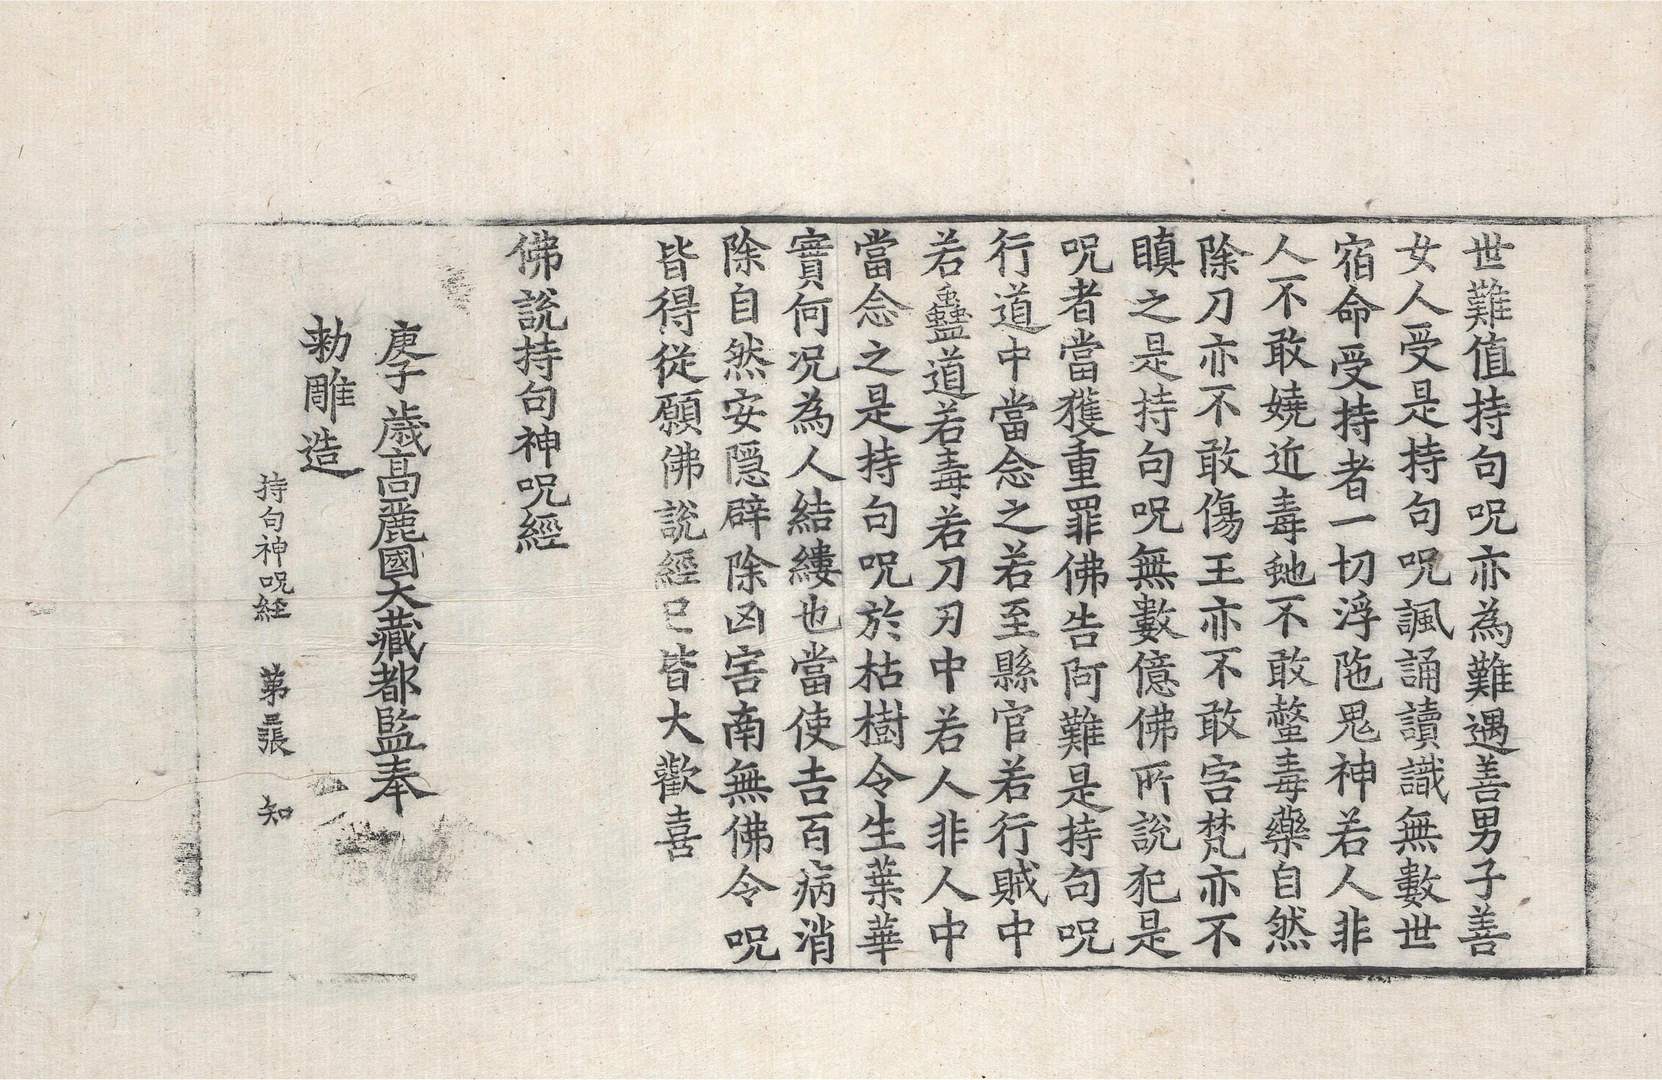 世難值持句呪亦為難遇善男子善
女人受是持句呪諷誦讀識無數世
宿命受持者一切浮陁鬼神若人非
人不敢嬈近毒虵不敢螫毒藥自然
除刀亦不敢傷王亦不敢害梵亦不
瞋之是持句呪無數億佛所說犯是
呪者當獲重罪佛告阿難是持句呪
行道中當念之若至縣官若行賊中
若蠱道若毒若刀刃中若人非人中
當念之是持句呪於枯樹令生葉華
實何况為人結縷也當使吉百病消
除自然安隱辟除凶害南無佛令呪
皆得從願佛說經已皆大歡喜
佛說持句神呪經
庚子歲高麗國大藏都監奉
勅雕造
持句神呪経 第三張 知